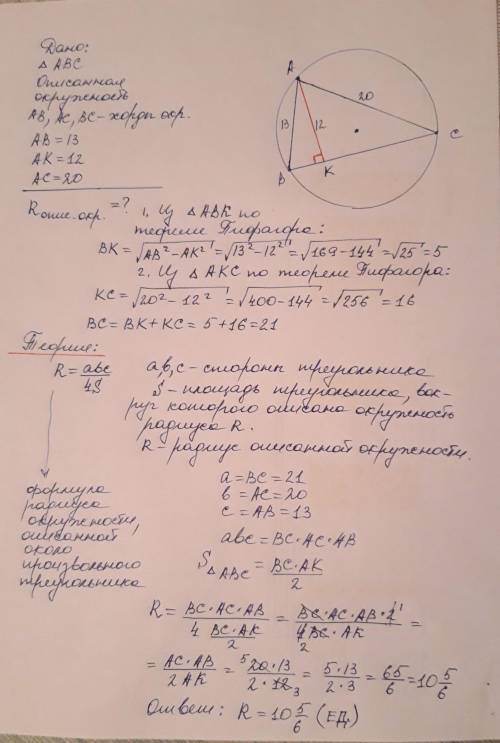 Дано:
△ ABC
Описанная
окружность
AB, AC, BC - хорды окр.
AB = 13
AK = 12
AC = 20
A
20
13
12
C
B
K
R опис. окр. = ?
1. Из △ ABK по
теореме Пифагора:
BK = √(AB² - AK²) = √(13² - 12²) = √(169 - 144) = √25 = 5
2. Из △ AKC по теореме Пифагора:
KC = √(20² - 12²) = √(400 - 144) = √256 = 16
BC = BK + KC = 5 + 16 = 21
Теория:
R = abc / 4S
a, b, c - стороны треугольника
S - площадь треугольника, вок-
руг которого описана окружность
радиуса R.
R - радиус описанной окружности.
формула
радиуса
окружности,
описанной
около
произвольного
треугольника
a = BC = 21
b = AC = 20
c = AB = 13
abc = BC · AC · AB
S △ ABC = BC · AK / 2
R = BC · AC · AB / 4 BC · AK / 2 = BC · AC · AB · 2 1 / 4 2 BC · AK =
= AC · AB / 2 AK = 5 20 · 13 / 2 · 12 3 = 5 · 13 / 2 · 3 = 65 / 6 = 10 5/6
Ответ: R = 10 5/6 (ЕД.)